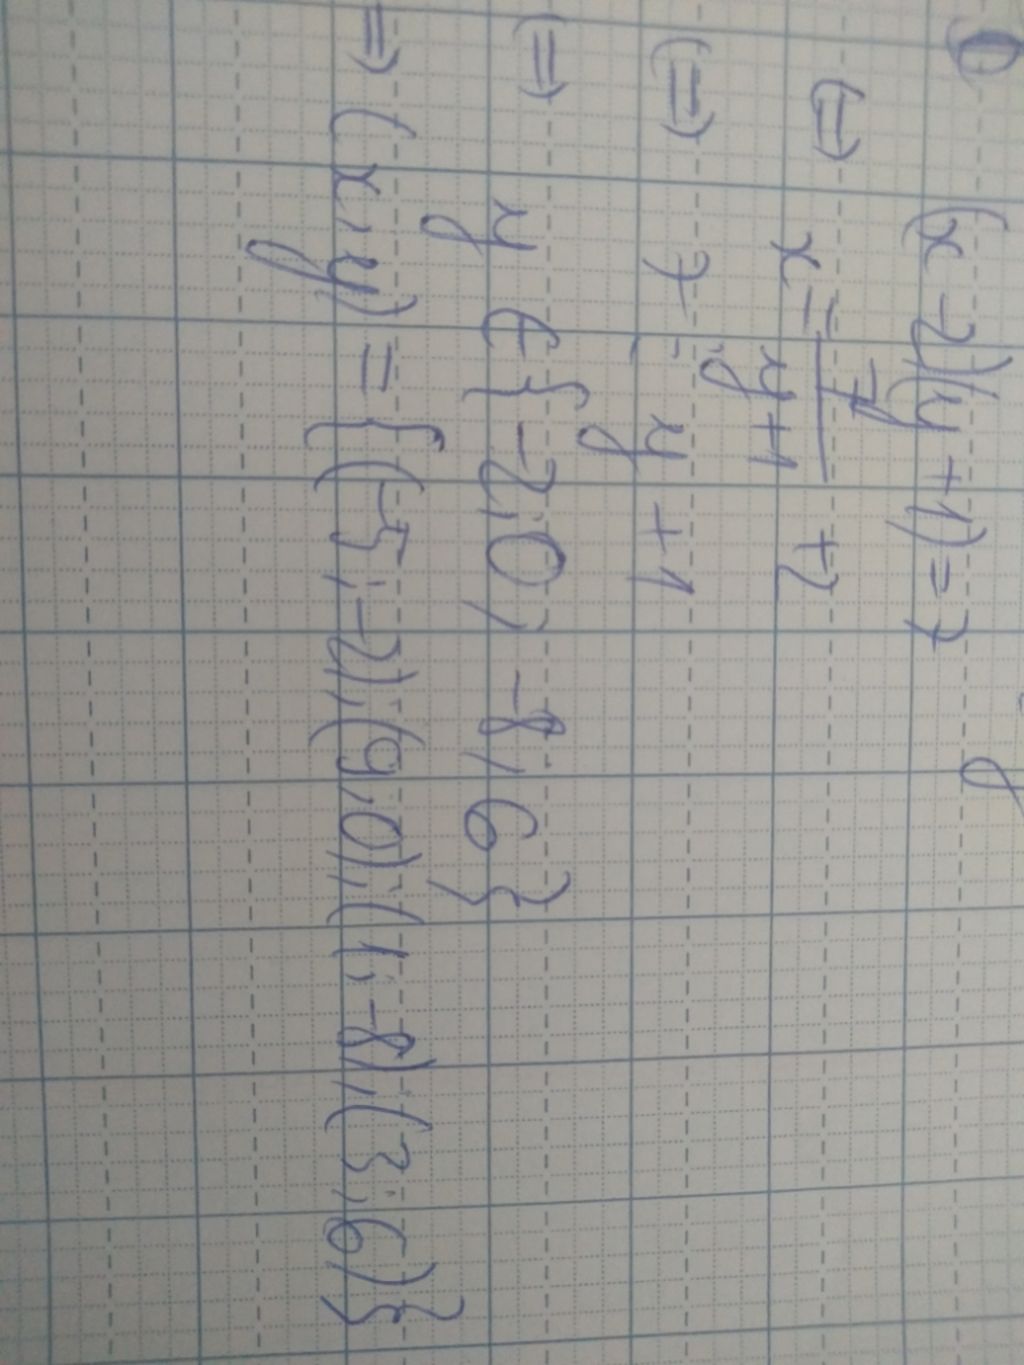 (x-2)(y+1)=7
⇔ x = 7/(y+1) + 2
⇔ 7 ⋮ y+1
⇔ y ∈ {-2; 0; -8; 6}
⇒ (x; y) = {(-5; -2); (9; 0); (1; -8); (3; 6)}